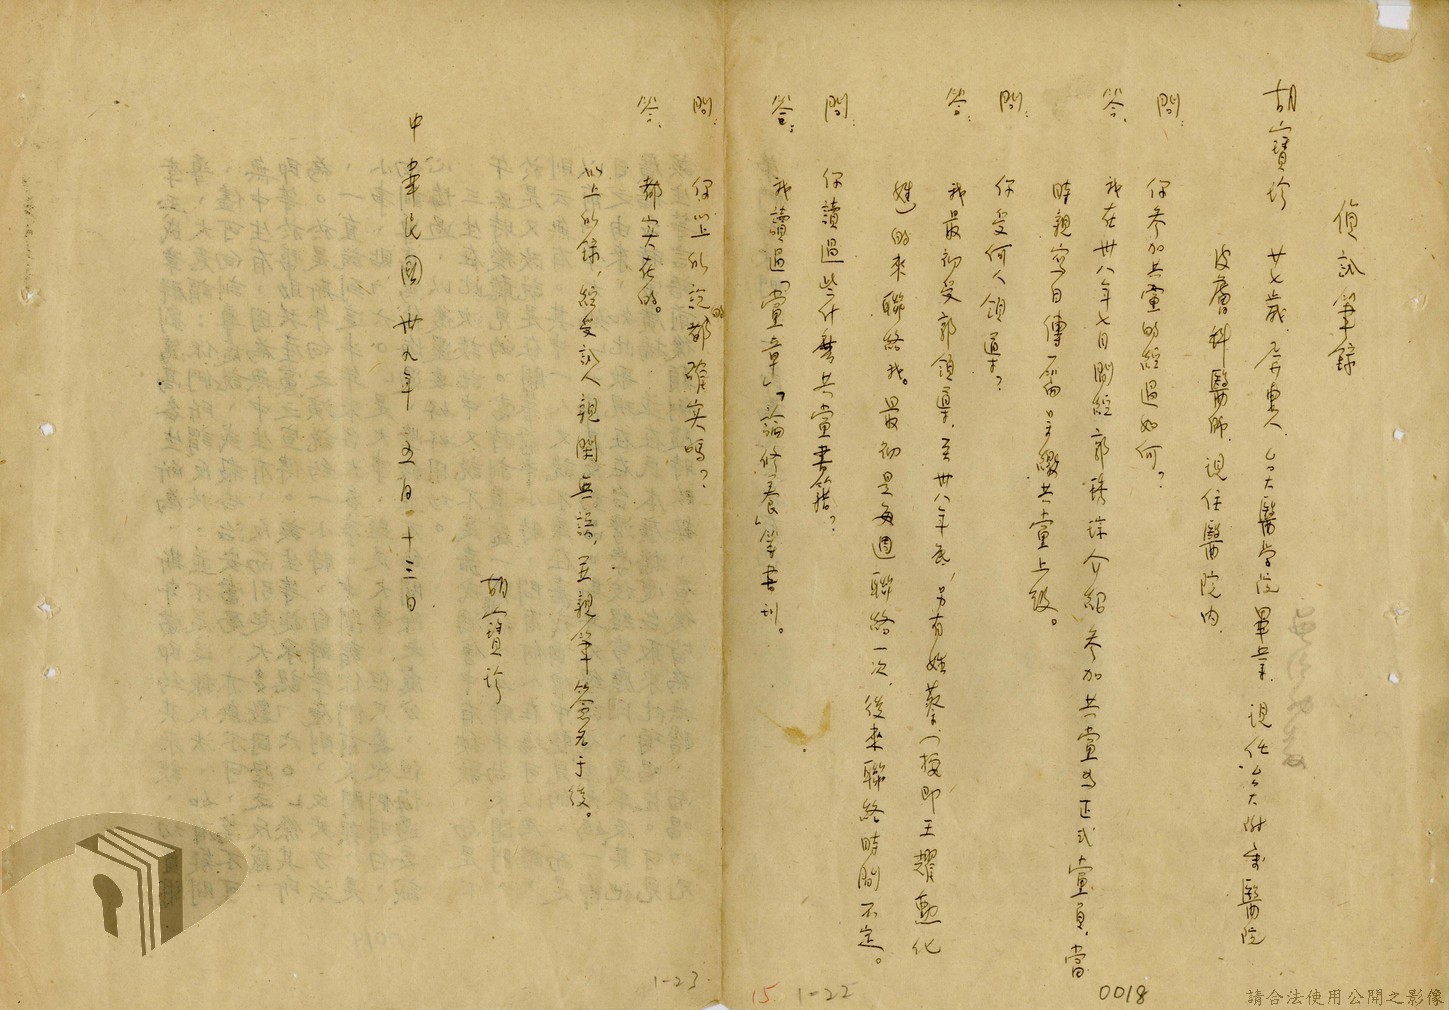 偵訊筆錄
胡寶珍 廿七歲，屏東人，台大醫学院畢業，現任台大附屬醫院
皮膚科醫師，現住醫院內。
問：你參加共黨的經過如何？
答：我在卅八年七月間經郭琇琮介紹參加共黨為正式黨員，當
時親寫自傳一篇呈繳共黨上級。
問：你受何人領導？
答：我最初受郭領導，至卅八年底，另有姓蔡（按即王耀勳化
姓）的來聯絡我。最初是每週聯絡一次，後來聯絡時間不定。
問：你讀過些什麼共黨書籍？
答：我讀過「黨章」「論修養」等書刊。
問：你以上所說的都確实嗎？
答：都实在的。
以上所錄，經受訊人親閱無誤，並親筆簽名于後。
胡寶珍
中華民國卅九年五月十三日
1-23
15 1-22
0018
請合法使用公開之影像